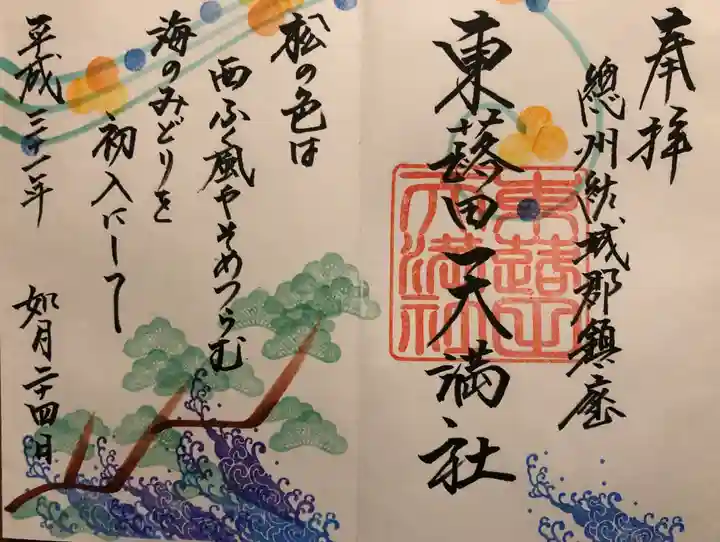 奉拝
總州結城郡鎮座
東蕗田天満社
東蕗田
天満社
松の色は
西ふく風やそめつらむ
海のみどりを
初入にして
平成三十一年 如月二十四日